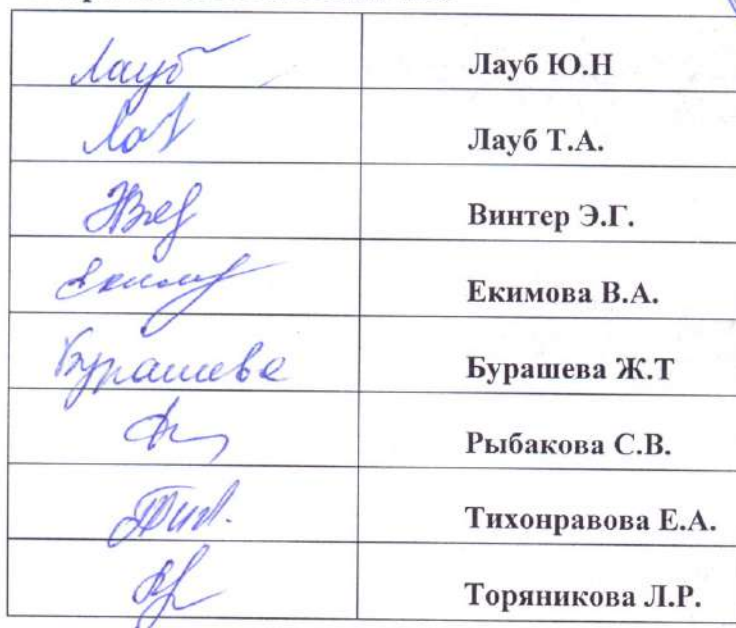 Лауб Лауб Ю.Н
Лауб Т.А.
Винтер Э.Г.
Екимова В.А.
Бурашева Бурашева Ж.Т
Рыбакова С.В.
Тихонравова Е.А.
Торяникова Л.Р.